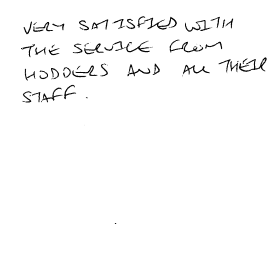 VERY SATISFIED WITH
THE SERVICE FROM
HODDERS AND ALL THEIR
STAFF.